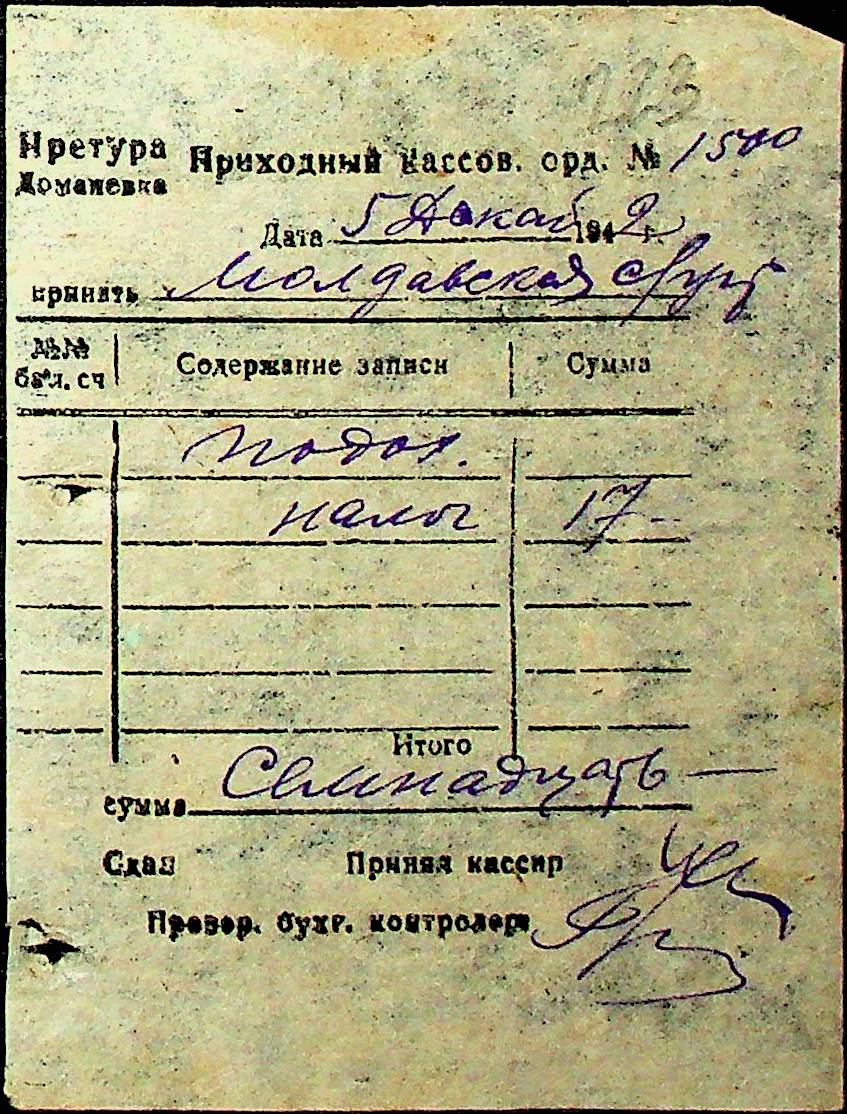 223
Претура Приходный кассов. орд. № 1500
Доманевка
Дата 5 Декаб 1942 г.
принять Молдавская
№№ бал. сч Содержание записи Сумма
подох.
налог 17-
Итого
сумма Семнадцать —
Сдал Принял кассир
Провер. бухг. контролер